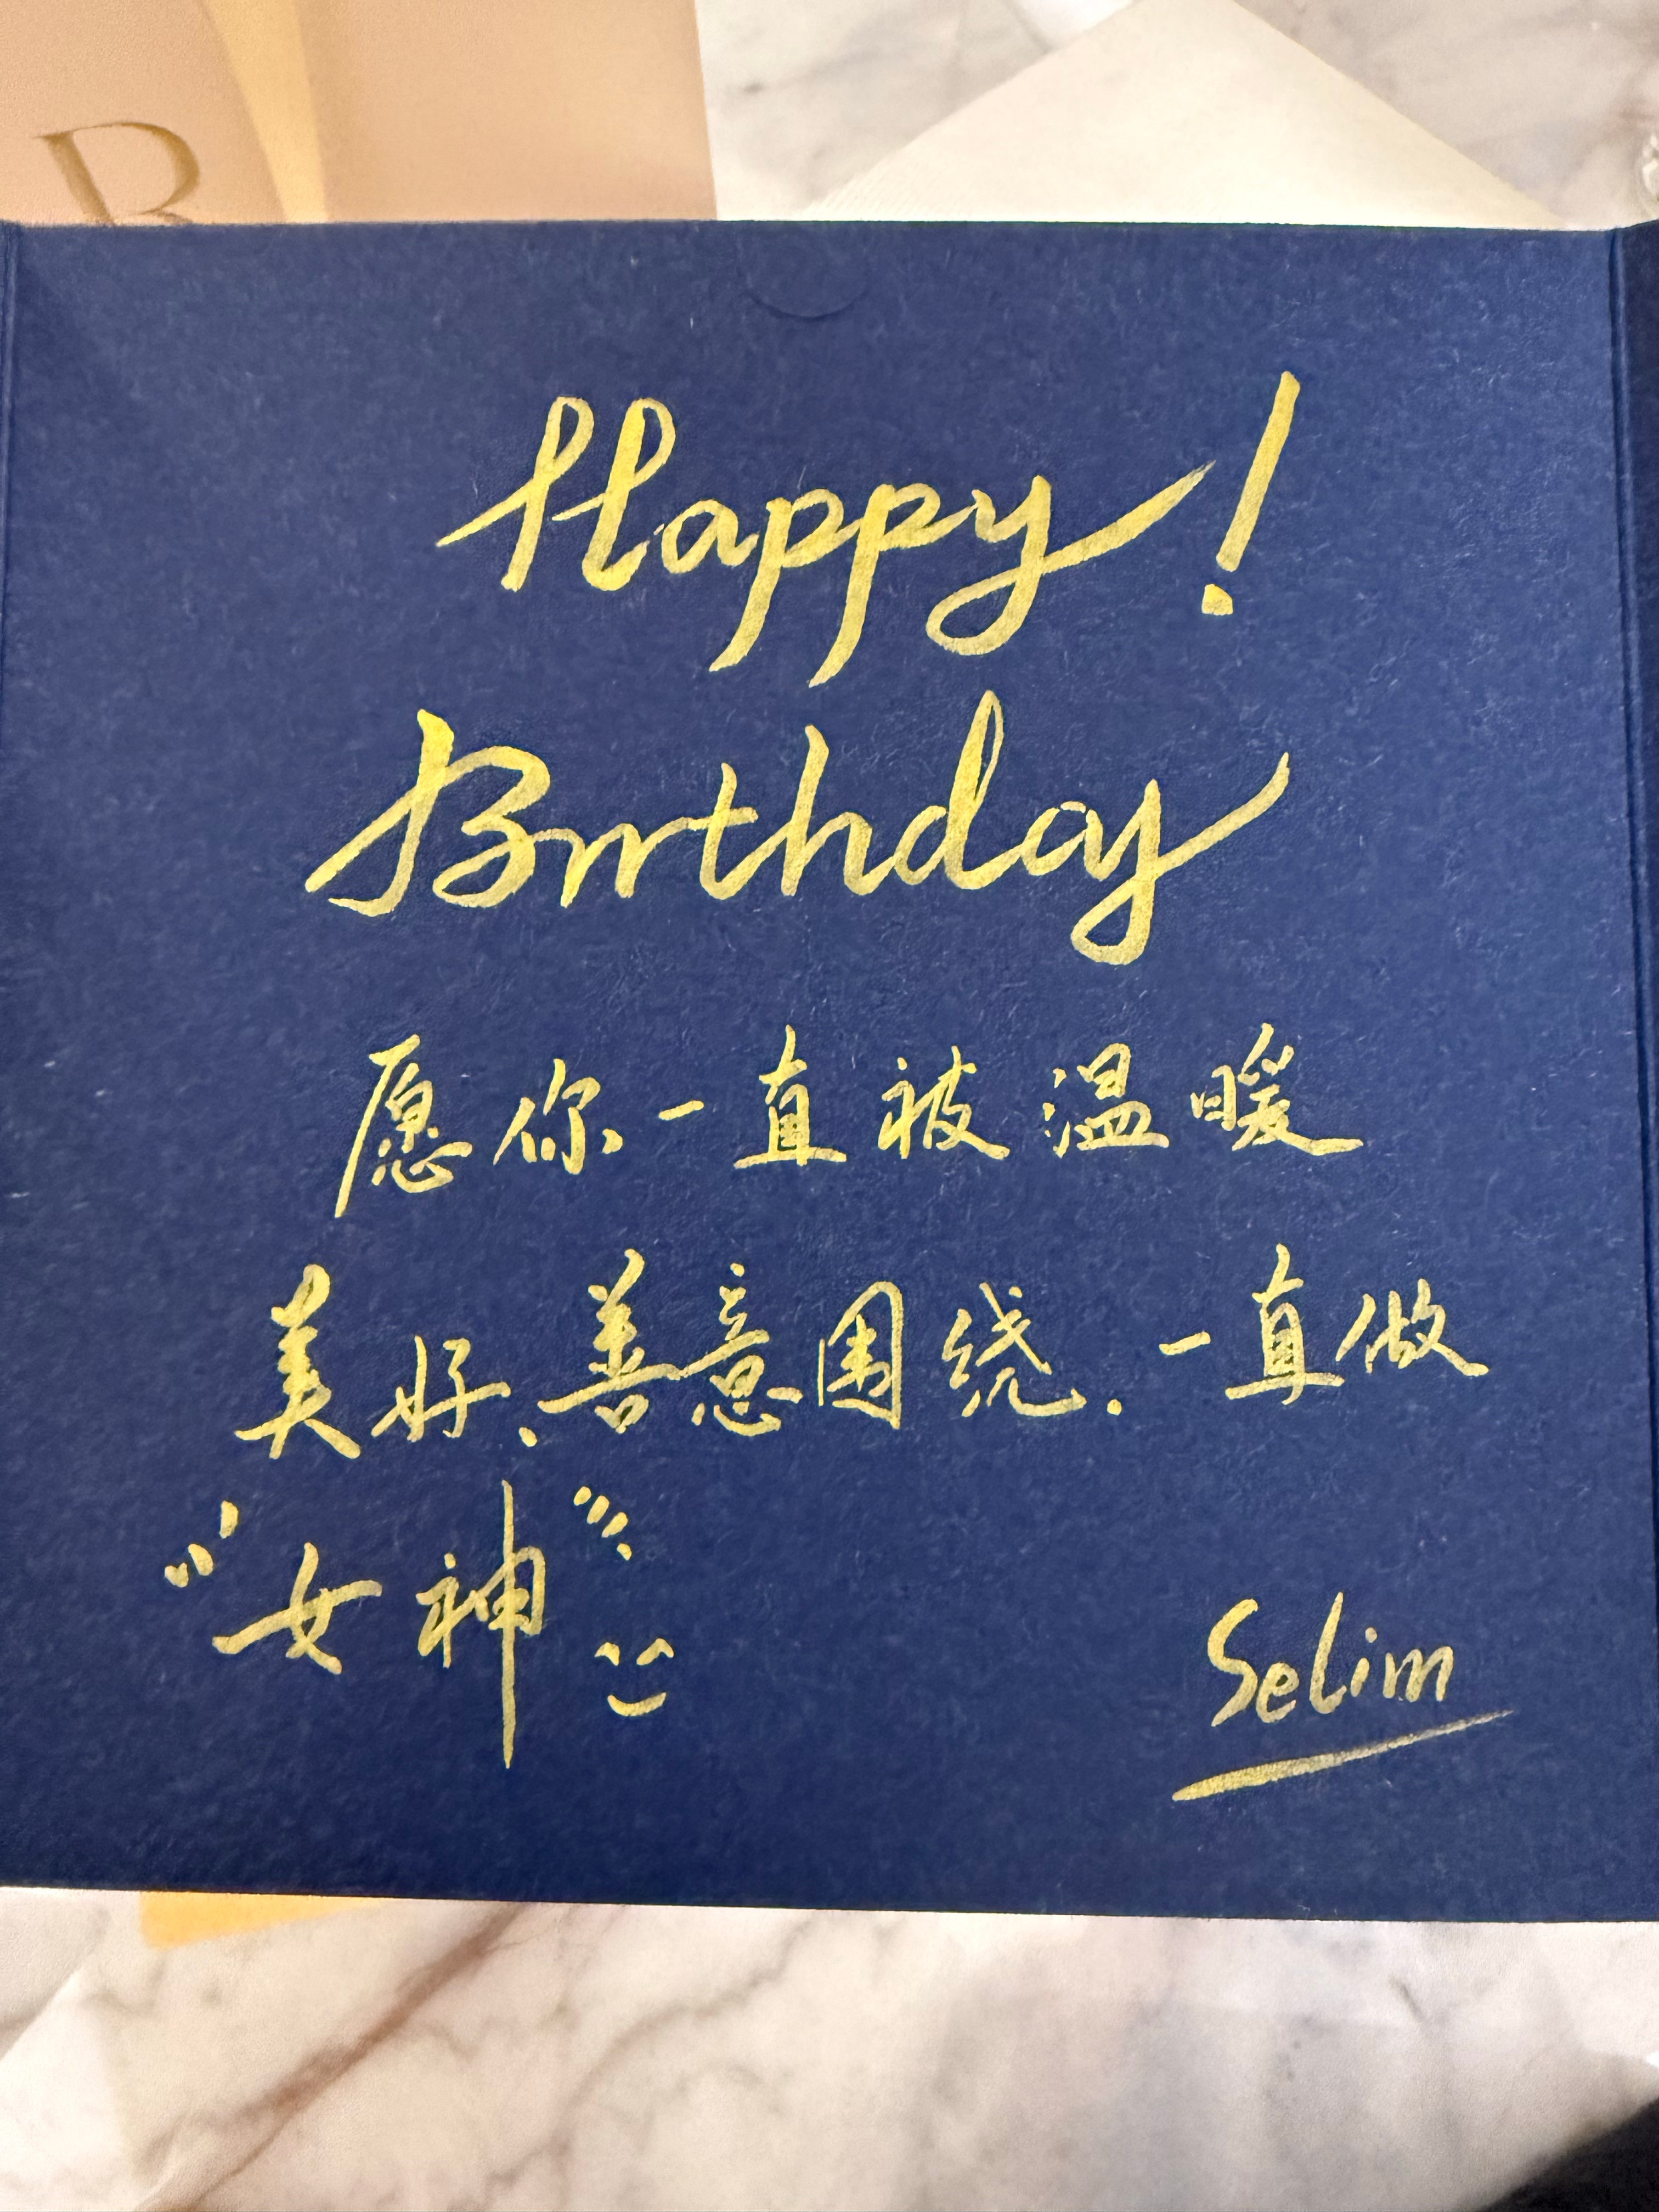 R
Happy!
Birthday
愿你一直被温暖
美好、善意围绕.一直做
"女神"
Selim